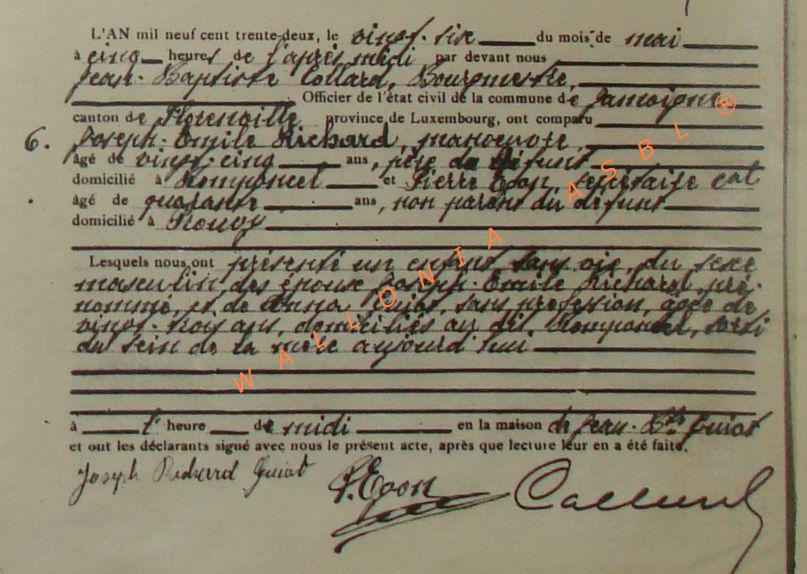 L'AN mil neuf cent trente-deux, le vingt-six du mois de mai
à cinq heures de l'après midi par devant nous
Jean-Baptiste Collard, Bourgmestre,
Officier de l'état civil de la commune de Jamoigne
canton de Florenville province de Luxembourg, ont comparu
6. Joseph-Emile Richard, manoeuvre,
âgé de vingt-cinq ans, père du défunt
domicilié à Romponcel et Pierre Egon, secrétaire cal
âgé de quarante ans, non parent du défunt
domicilié à
Lesquels nous ont présenté un enfant sans vie, du sexe
masculin, des époux Joseph-Emile Richard, pré-
nommé, et de Anna Guiot, sans profession, âgée de
vingt-trois ans, domiciliés au dit Romponcel, sorti
du sein de la mère aujourd'hui
à l' heure de midi en la maison de Jean-Bte Guiot
et ont les déclarants signé avec nous le présent acte, après que lecture leur en a été faite.
Joseph Richard Guiot P. Egon Collard
WALLONIA ASBL ®